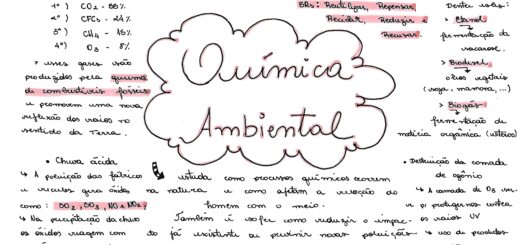 1º) CO2 - 55%
2º) CFCs - 24%
3º) CH4 - 15%
4º) O3 - 8%
> esses gases são
produzidos pela queima
de combustíveis fósseis
e promovem uma nova
reflexão dos raios no
sentido da Terra.
5Rs: Reutilizar, Repensar,
Reciclar, Reduzir e
Recusar.
Dentre eles:
> Etanol
fermentação da
sacarose.
> Biodiesel
óleos vegetais
(soja, mamona, ...)
> Biogás
fermentação de
matéria orgânica
Química
Ambiental
• Chuva ácida
↳ A poluição das fábricas
e veículos gera óxidos
como: SO2, SO3, NO e NO2,
↳ Na precipitação da chuva
os óxidos reagem com
estuda como processos químicos ocorrem
na natureza e como afetam a relação do
homem com o meio.
Também é sobre como reduzir o impac-
to já existente ou prevenir novas poluições
• Destruição da camada
de ozônio
↳ A camada de O3 ser-
ve p/ protegernos contra
os raios UV
↳ uso de produtos